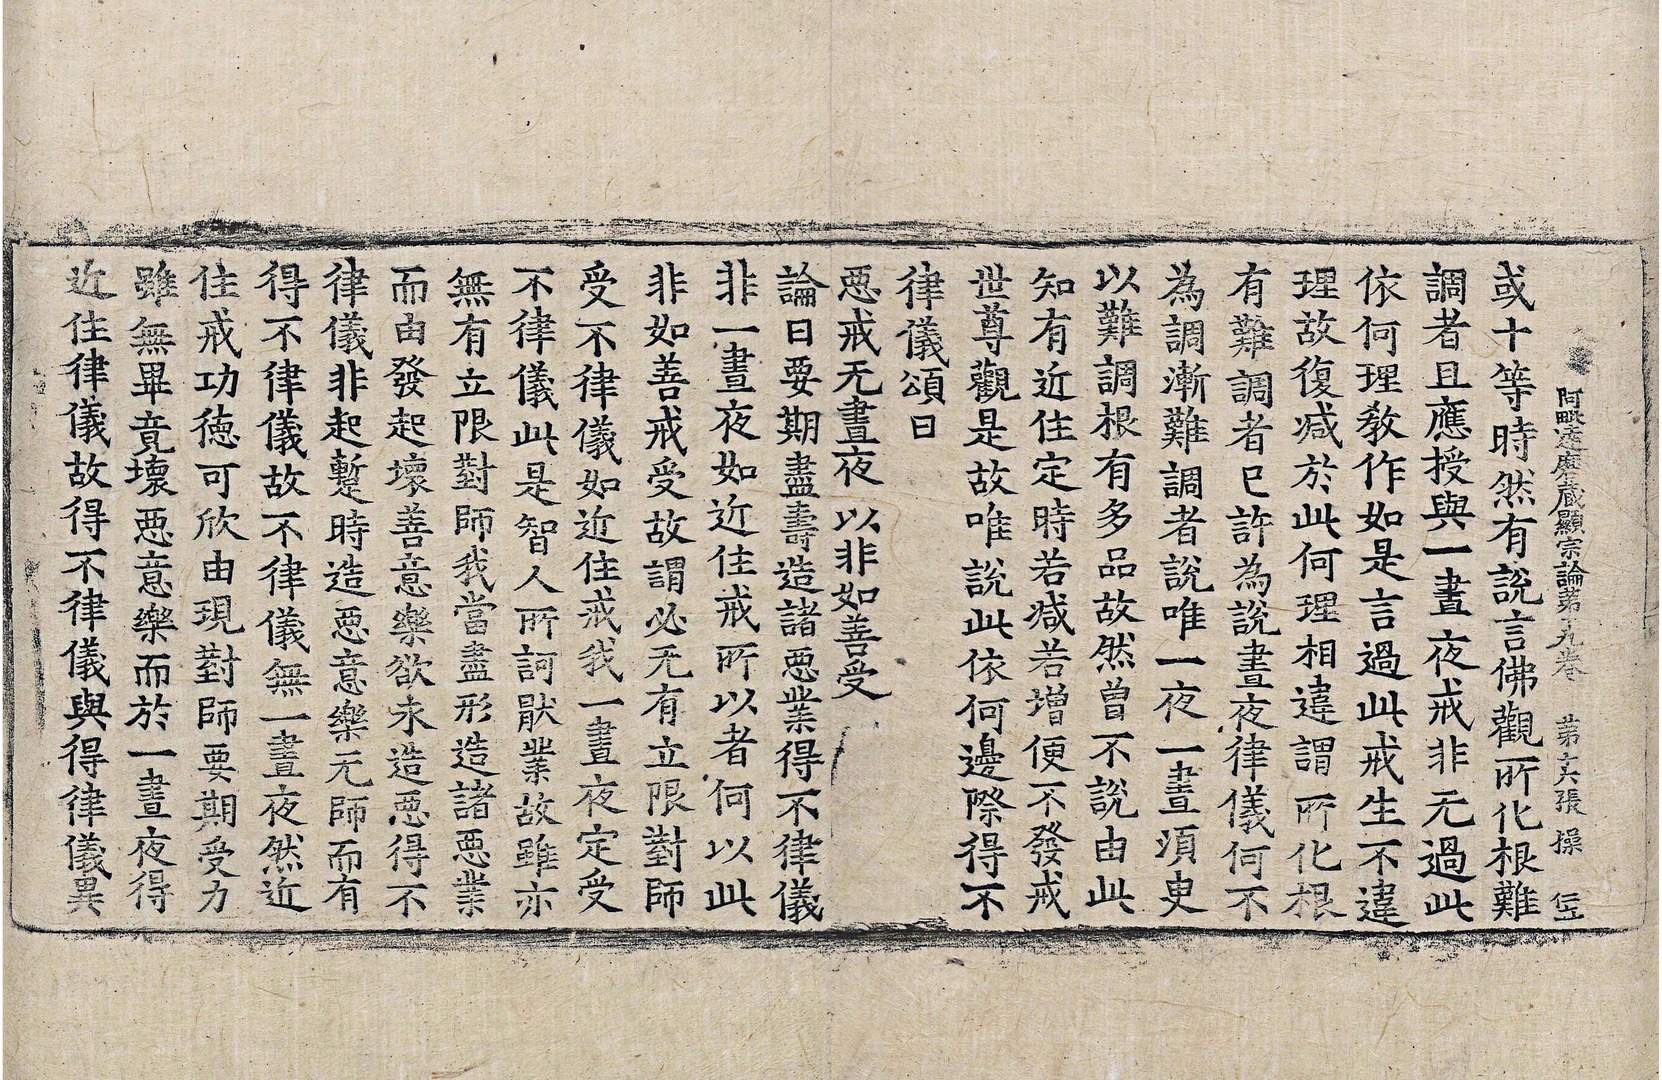 阿毗達磨藏顯宗論第十九卷 第六張 操
或十等時然有說言佛觀所化根難
調者且應授與一晝夜戒非无過此
依何理教作如是言過此戒生不違
理故復減於此何理相違謂所化根
有難調者已許為說晝夜律儀何不
為調漸難調者說唯一夜一晝須臾
以難調根有多品故然曾不說由此
知有近住定時若減若增便不發戒
世尊觀是故唯說此依何邊際得不
律儀頌曰
惡戒无晝夜以非如善受
論曰要期盡壽造諸惡業得不律儀
非一晝夜如近住戒所以者何以此
非如善戒受故謂必无有立限對師
受不律儀如近住戒我一晝夜定受
不律儀此是智人所訶猒業故雖亦
無有立限對師我當盡形造諸惡業
而由發起壞善意樂欲永造惡得不
律儀非起蹔時造惡意樂无師而有
得不律儀故不律儀無一晝夜然近
住戒功德可欣由現對師要期受力
雖無畢竟壞惡意樂而於一晝夜得
近住律儀故得不律儀與得律儀異